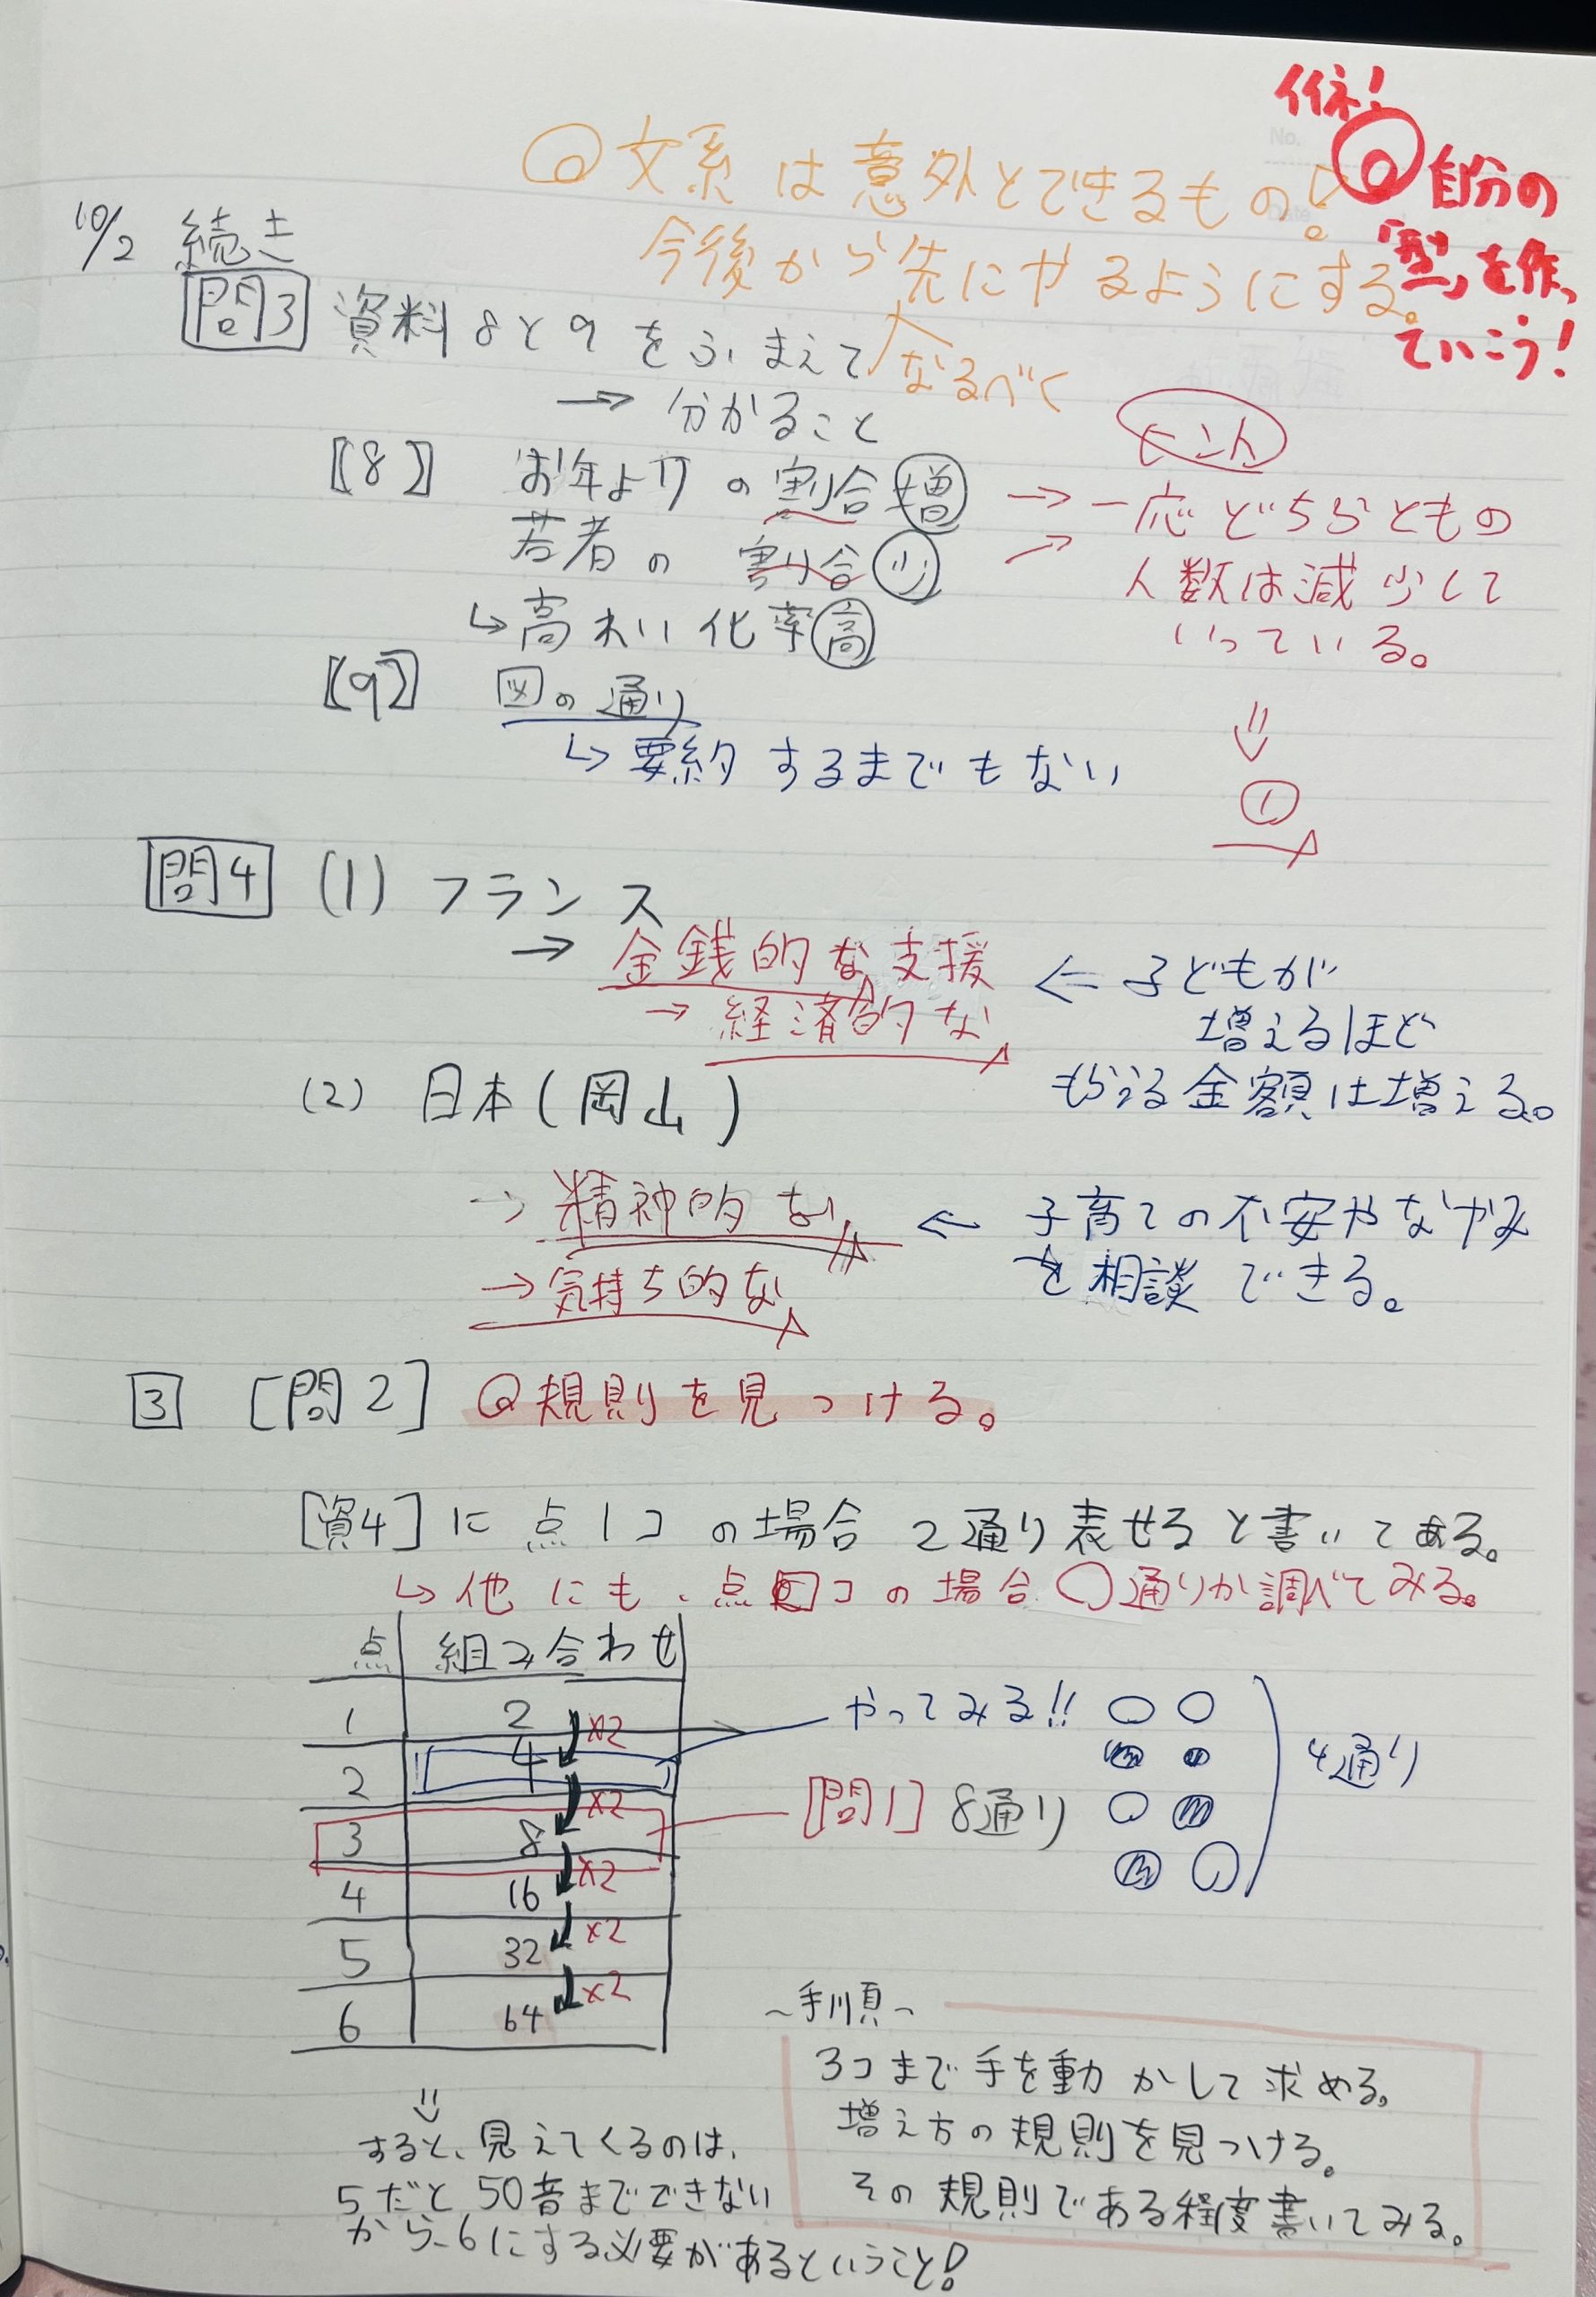 イイネ!
◎自分の
「型」を作っ
ていこう!
No.
Date
◎文系は意外とできるもの。
今後から先にやるようにする。
なるべく
10/2 続き
問3 資料8と9をふまえて
→ 分かること
【8】 お年よりの割合増
若者の割合少
→ 一応どちらともの
人数は減少して
いっている。
⇓
①
↳高れい化率高
【9】 図の通り
↳要約するまでもない
問4 (1) フランス
→ 金銭的な支援
→ 経済的な
⇐ 子どもが
増えるほど
もらえる金額は増える。
(2) 日本(岡山)
→ 精神的な
→ 気持ち的な
← 子育ての不安やなやみ
を相談できる。
3 [問2] ◎規則を見つける。
[資4]に点1コの場合2通り表せると書いてある。
↳他にも、点□コの場合〇通りか調べてみる。
点 組み合わせ
1 2 ×2
2 4 ×2
3 8 ×2
4 16 ×2
5 32 ×2
6 64
やってみる!! 4通り
[問1] 8通り
⇓
すると、見えてくるのは、
5だと50音までできない
から、6にする必要があるということ!
~手順~
3コまで手を動かして求める。
増え方の規則を見つける。
その規則である程度書いてみる。